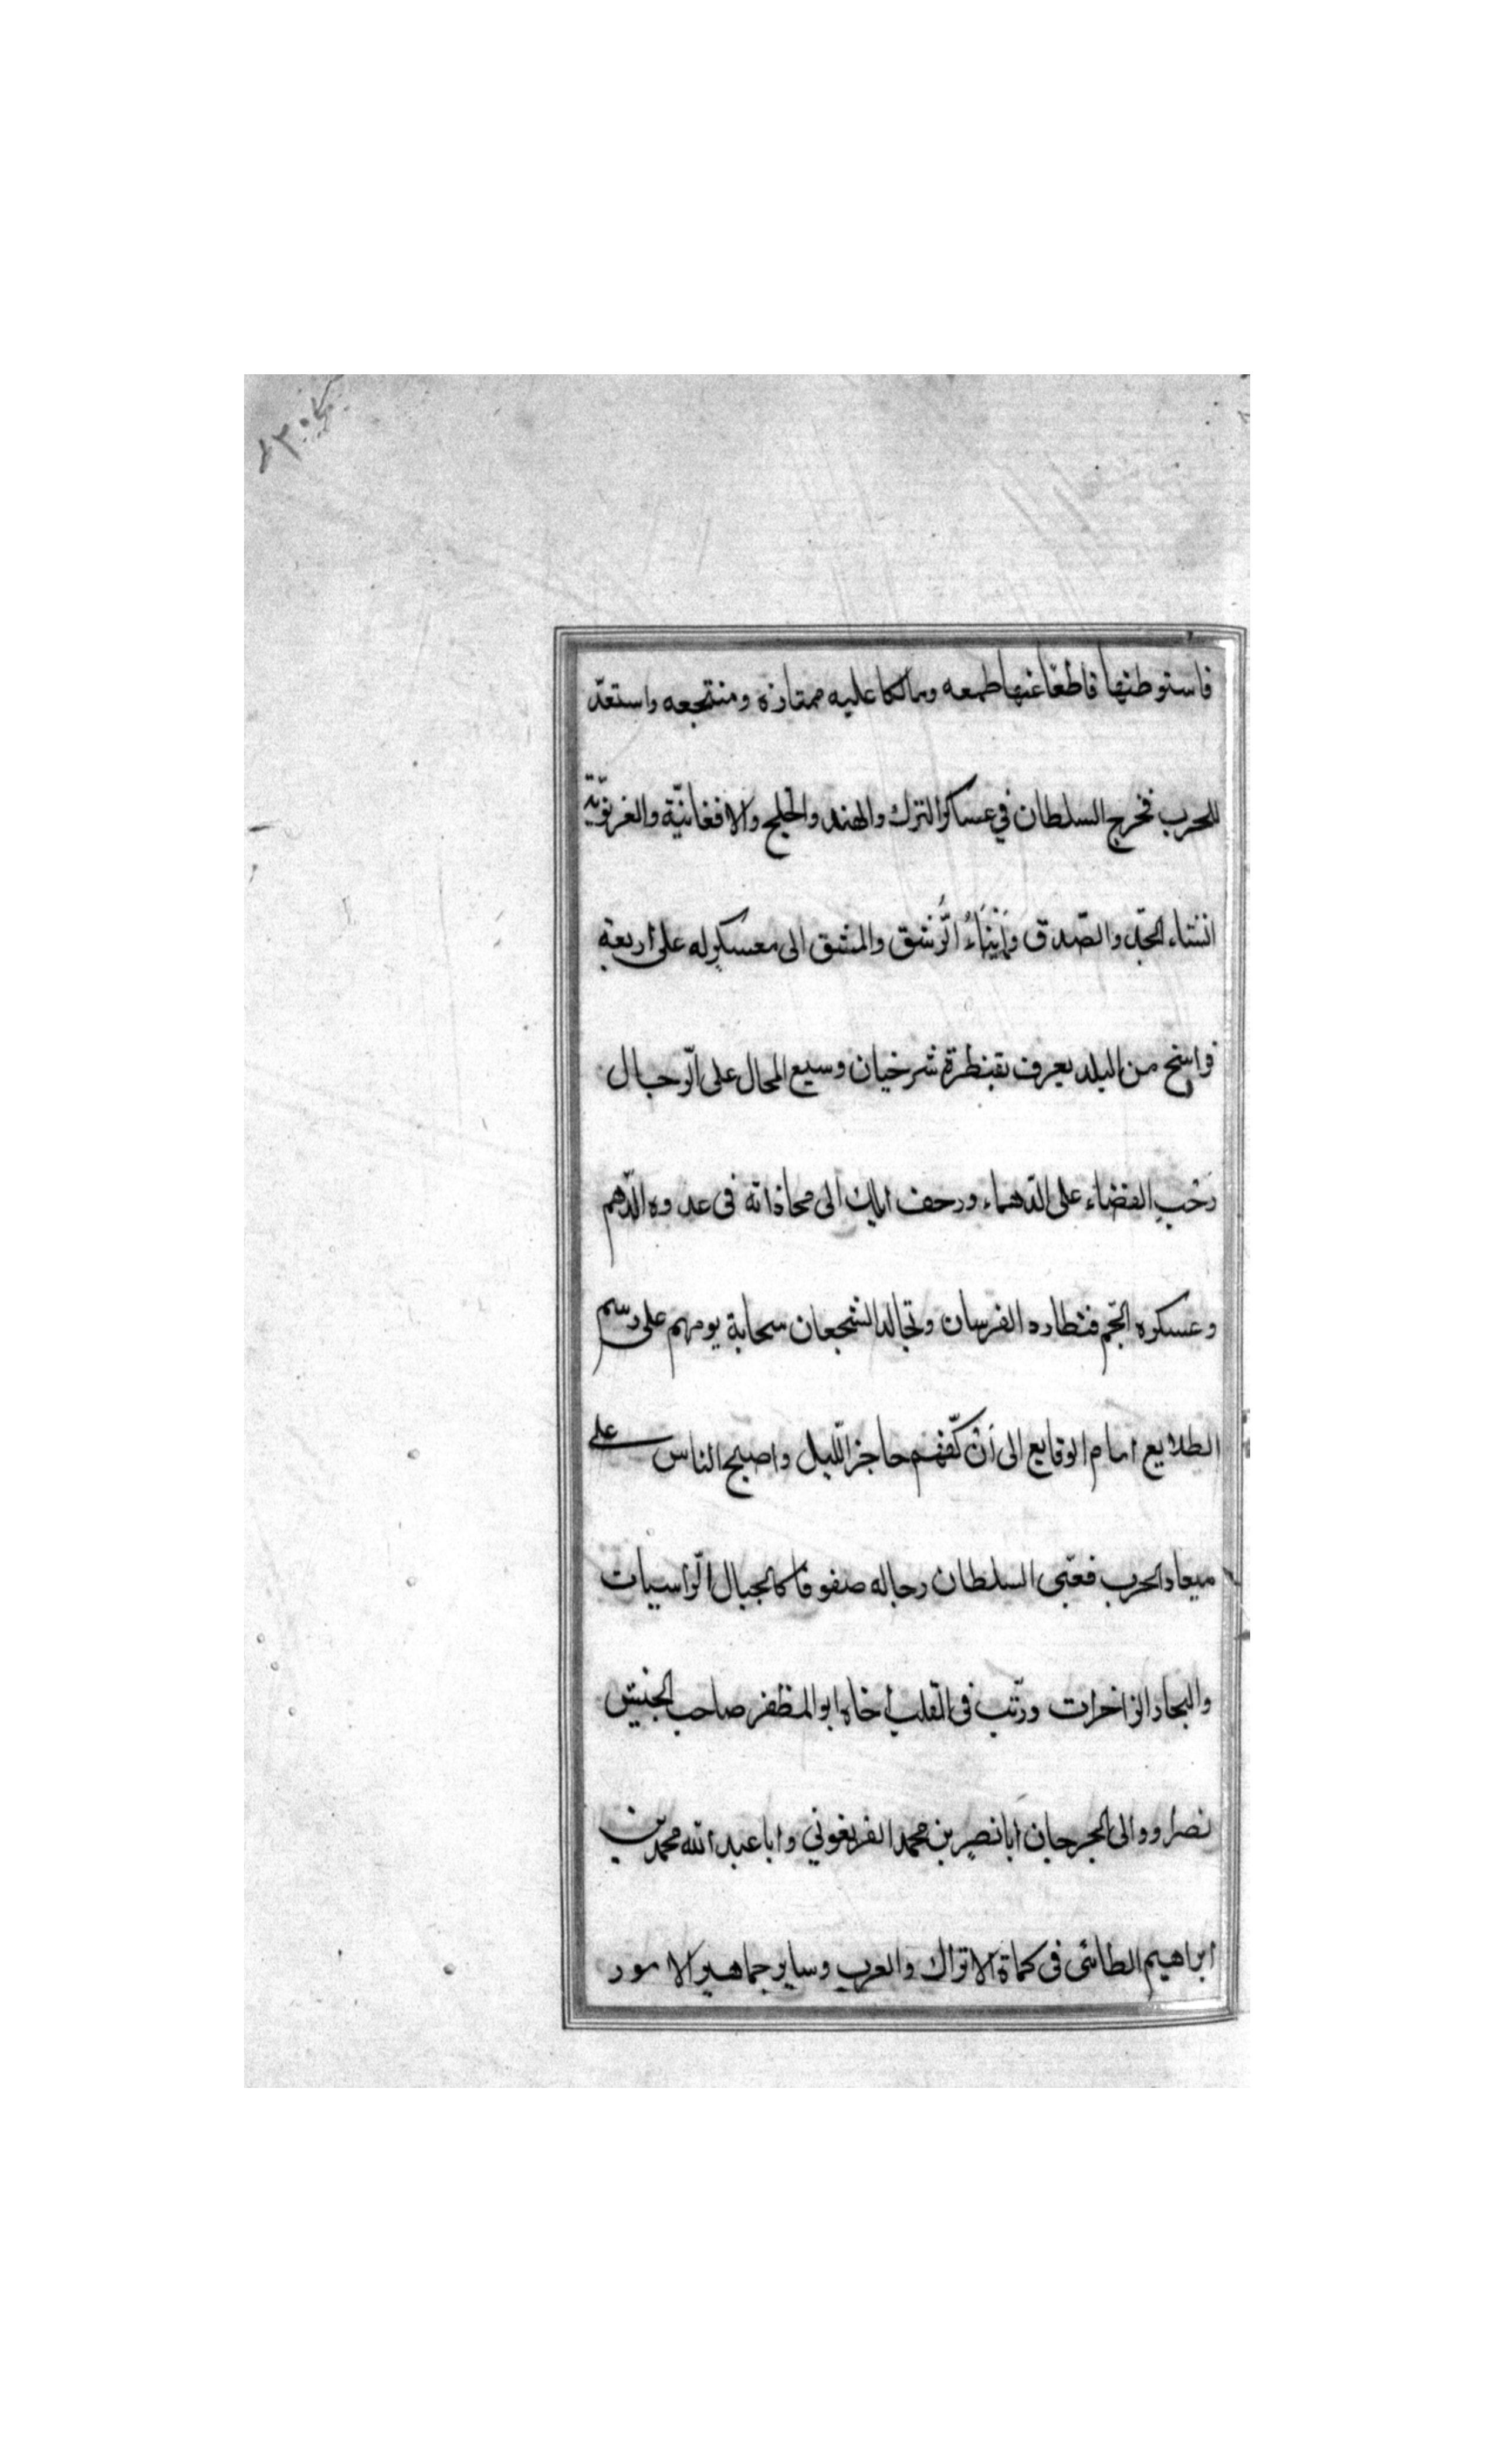 فاستوطنها قاطعًا عنها طمعه ومالكا عليه ممتاره ومنتجعه واستعدّ
للحرب فخرج السلطان في عساكر الترك والهند والخلج والافغانيّة والغزنويّة
انشاء الجدّ والصّدق وَاَبْنَاءُ الرَّشق والمشق الى معسكرٍ له على اربعة
فراسخ من البلد يعرف بقنطرة شرخيان وسيع المجال على الرّجال
رَحْبِ الفضاء على الدّهماء وزحف ايلك الى محاذاته فى عدوه الدّهم
وعسكره الجّم فتطارد الفرسان وتجالد الشجعان سحابة يومهم على رسم
الطلايع امام الوقايع الى اَنْ كفّهم حاجز اللّيل واصبح الناس على
ميعاد الحرب فعبّى السلطان رجاله صفوفا كالجبال الرّاسيات
والبحار الزاخرات ورتّب فى القلب اخاه ابو المظفر صاحب الجيش
نصرا ووالى الجرجان ابا نصر بن محمد الفريغوني وابا عبد الله محمد بن
ابراهيم الطائى فى كماة الاتراك والعرب وساير جماهير الامور